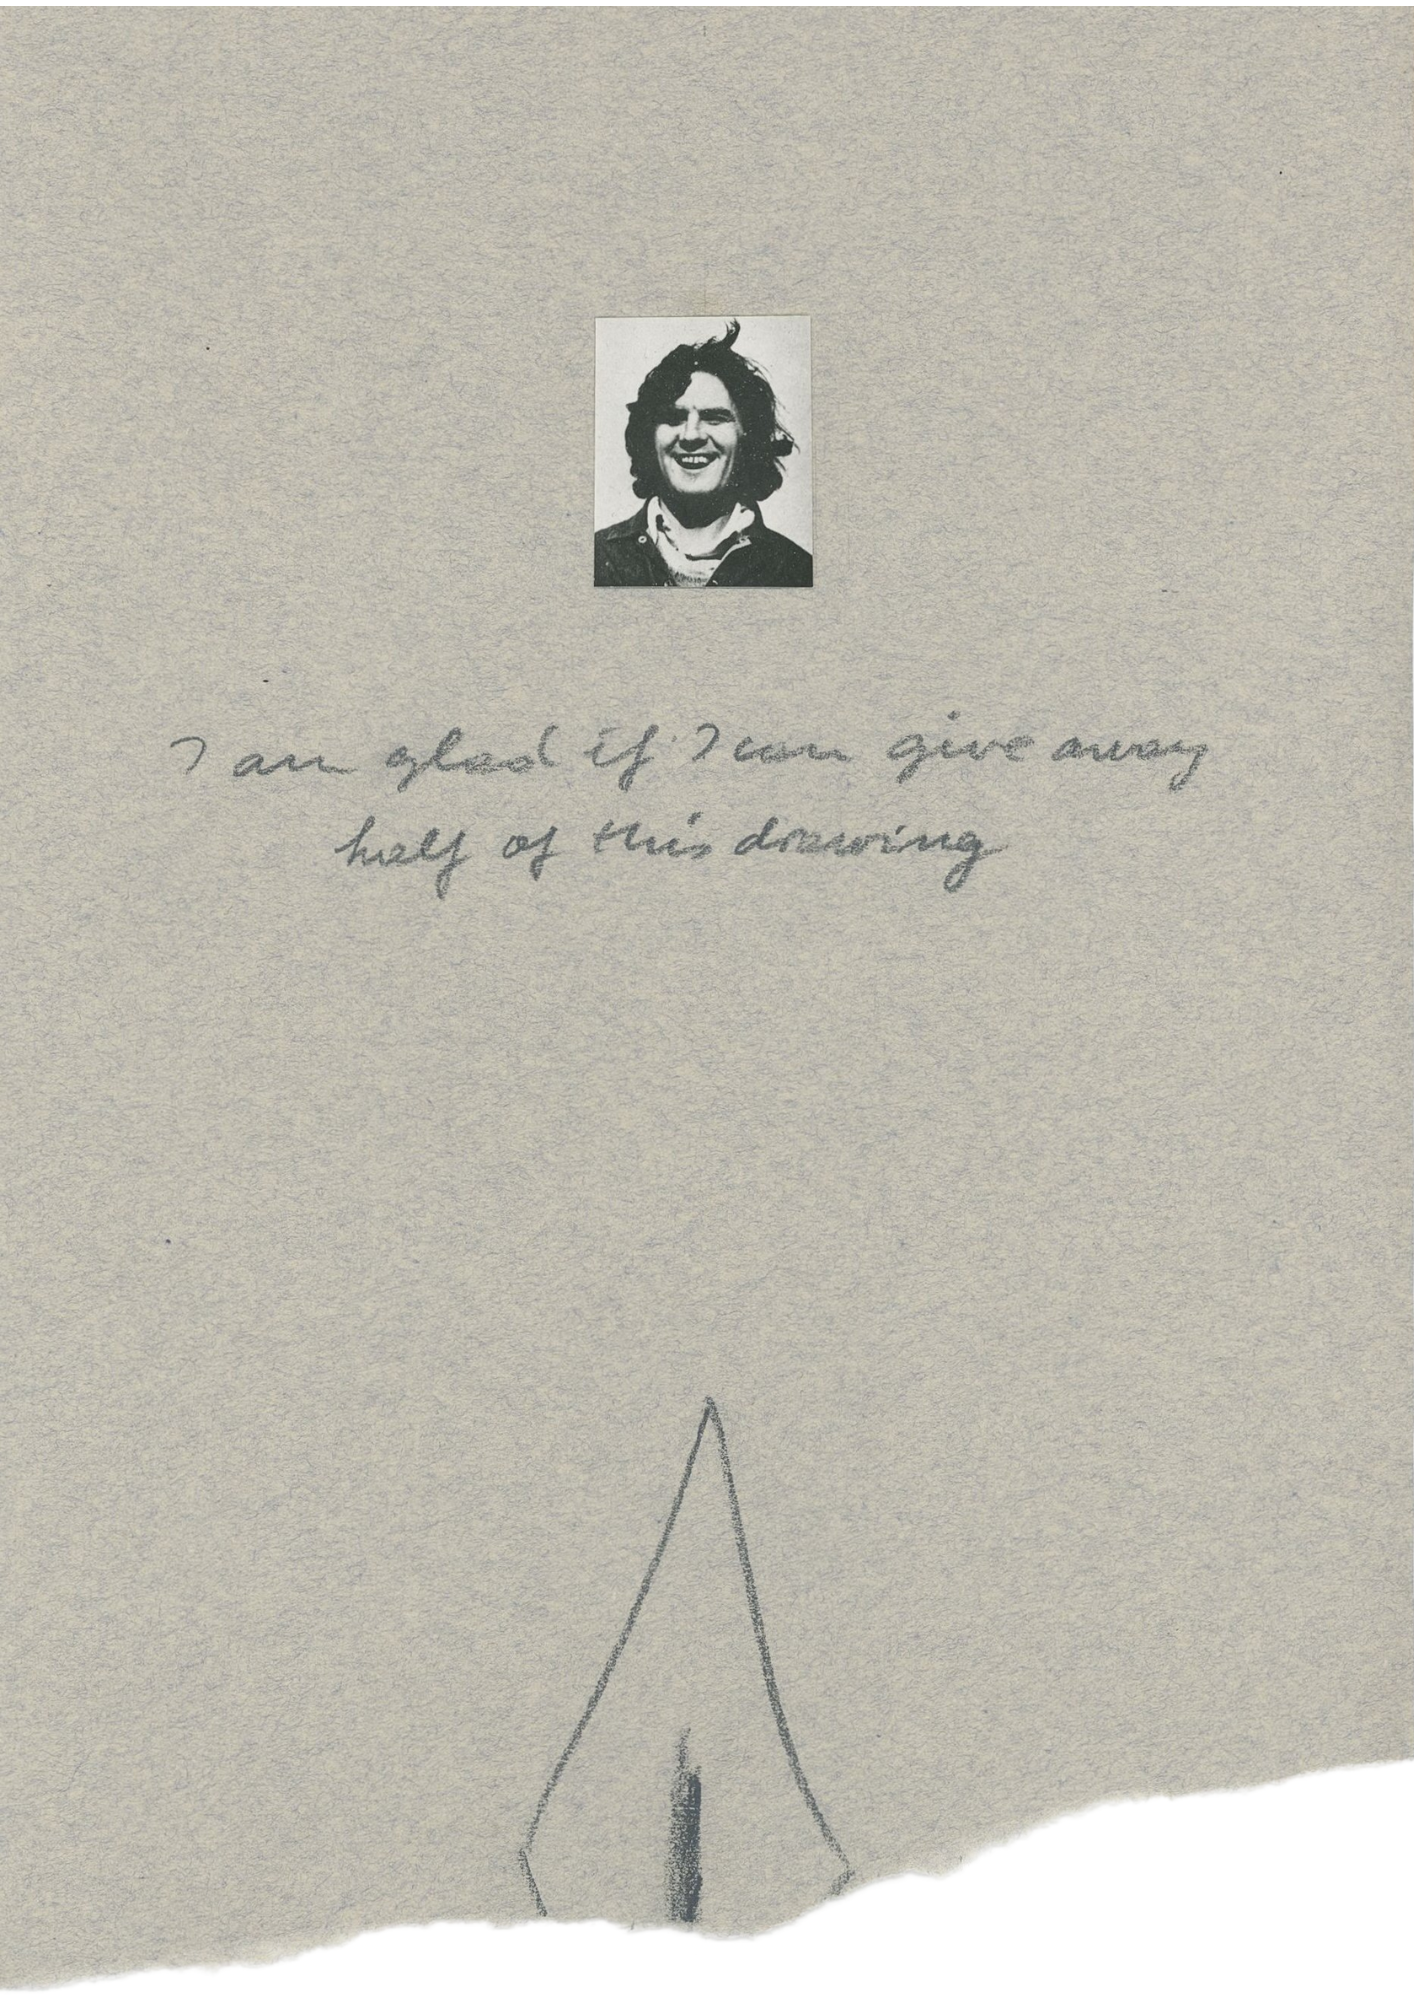 I am glad if I can give away
half of this drawing